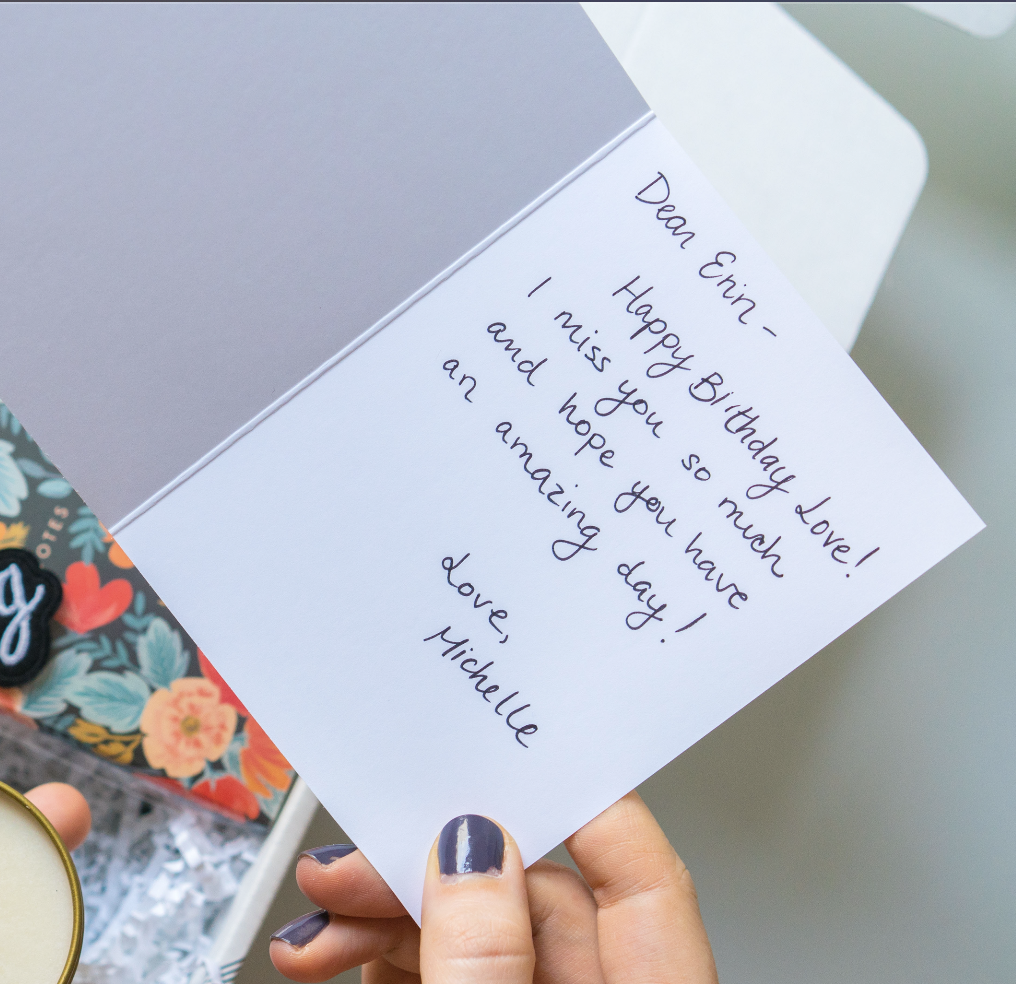 Dear Erin -
Happy Birthday Love!
I miss you so much
and hope you have
an amazing day!
Love,
Michelle
OTES
g